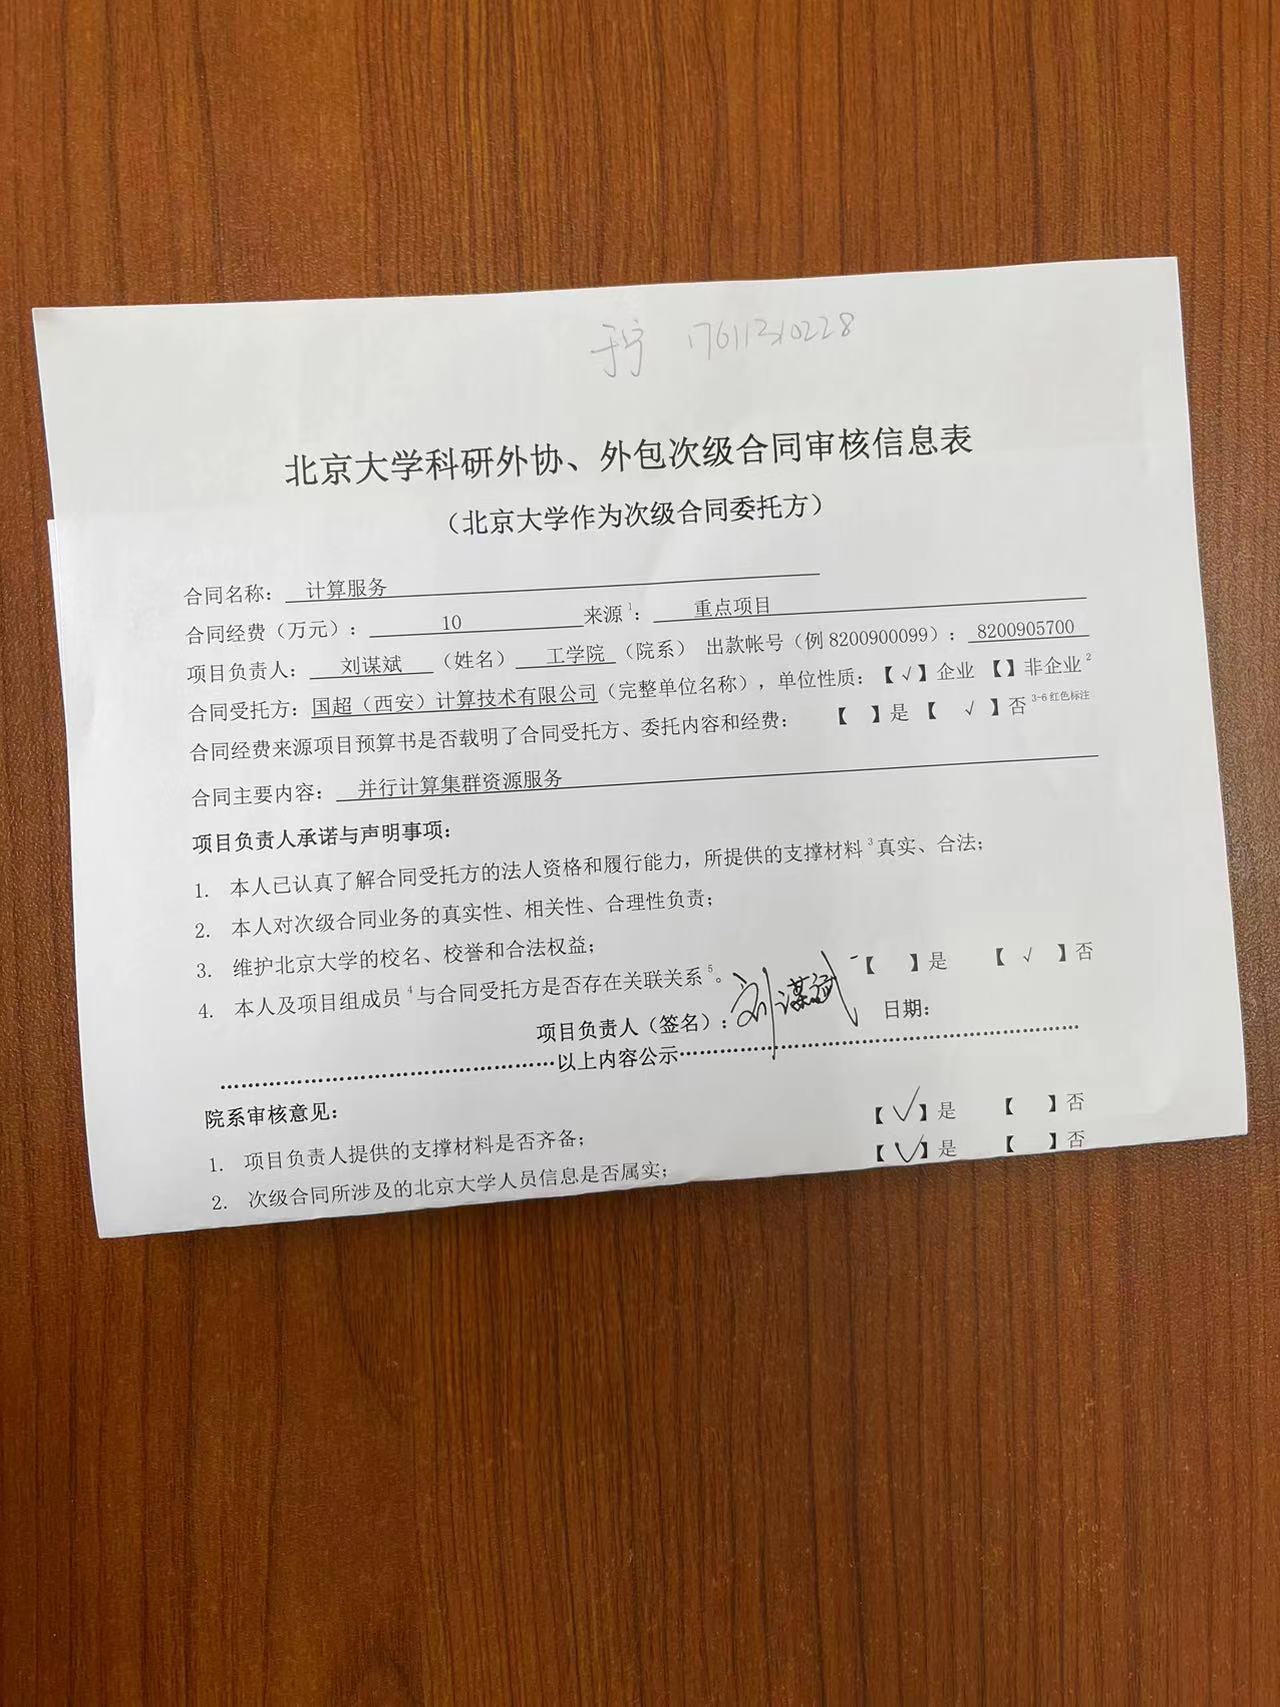 于宁 17611210228
北京大学科研外协、外包次级合同审核信息表
（北京大学作为次级合同委托方）
合同名称： 计算服务
合同经费（万元）： 10 来源1： 重点项目
项目负责人： 刘谋斌 （姓名） 工学院 （院系） 出款帐号（例 8200900099）： 8200905700
合同受托方：国超（西安）计算技术有限公司（完整单位名称），单位性质：【√】企业 【】非企业2
合同经费来源项目预算书是否载明了合同受托方、委托内容和经费： 【 】是 【 √ 】否 3-6 红色标注
合同主要内容： 并行计算集群资源服务
项目负责人承诺与声明事项：
1. 本人已认真了解合同受托方的法人资格和履行能力，所提供的支撑材料3真实、合法；
2. 本人对次级合同业务的真实性、相关性、合理性负责；
3. 维护北京大学的校名、校誉和合法权益；
4. 本人及项目组成员4与合同受托方是否存在关联关系5。 【 】是 【 √ 】否
项目负责人（签名）：刘谋斌 日期：
……………………………………以上内容公示……………………………………
院系审核意见：
1. 项目负责人提供的支撑材料是否齐备； 【√】是 【 】否
2. 次级合同所涉及的北京大学人员信息是否属实； 【√】是 【 】否